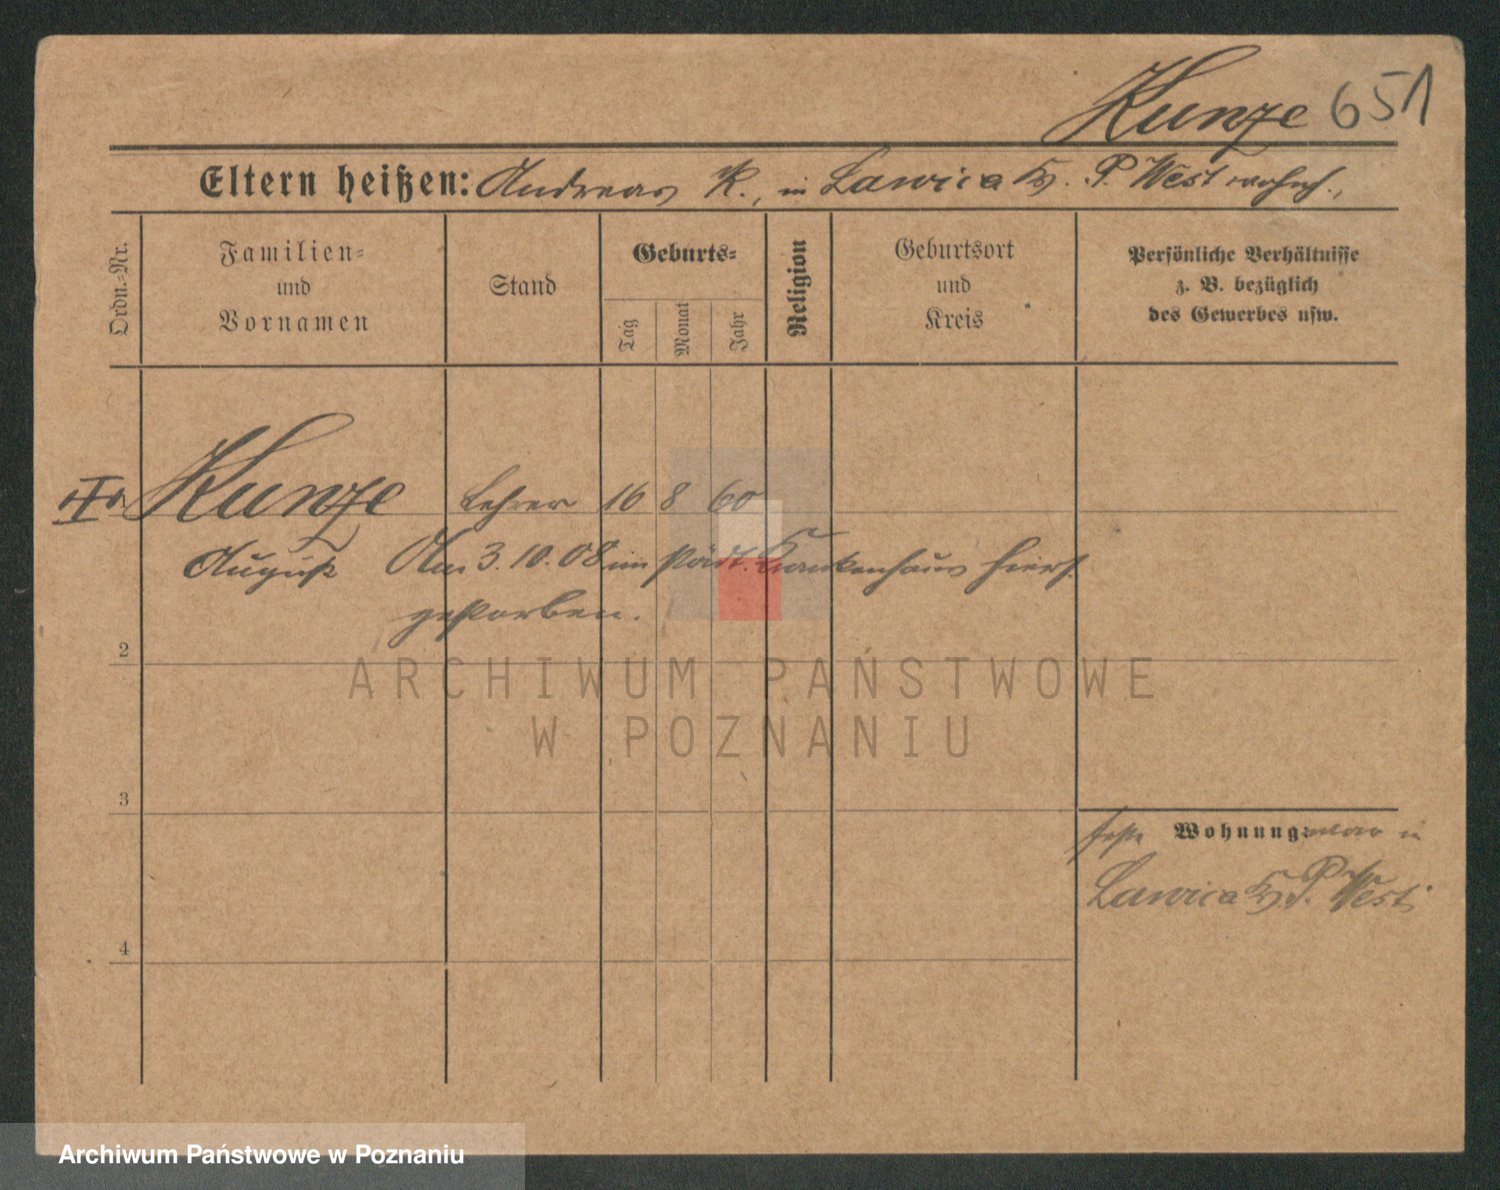 Kunze 651
Eltern heißen: Andreas K., in Lawica Kr. P. West wohnh.,
Ordn.-Nr.
Familien-
und
Vornamen
Stand
Geburts-
Tag
Monat
Jahr
Religion
Geburtsort
und
Kreis
Persönliche Verhältnisse
z. B. bezüglich
des Gewerbes usw.
Kunze Lehrer 16 8 60
August Am 3.10.08 im städt. Krankenhaus hiers.
gestorben.
2
ARCHIWUM PAŃSTWOWE
W POZNANIU
3
feste Wohnung: war in
Lawica Kr. P. West.
4
Archiwum Państwowe w Poznaniu